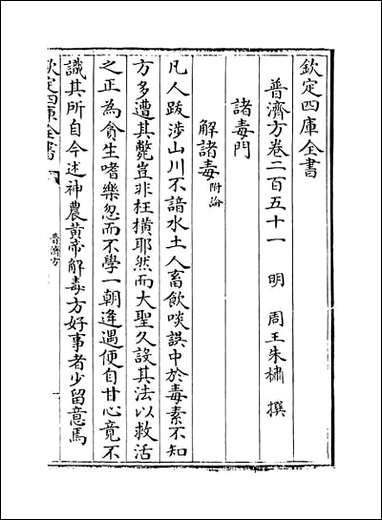 欽定四庫全書
普濟方卷二百五十一 明 周王朱橚 撰
諸毒門
解諸毒附論
凡人跋涉山川不諳水土人畜飲啖誤中於毒素不知
方多遭其斃豈非枉橫耶然而大聖久設其法以救活
之正為貪生嗜樂忽而不學一朝逢遇便自甘心竟不
識其所自今述神農黃帝解毒方好事者少留意焉
欽定四庫全書
普濟方